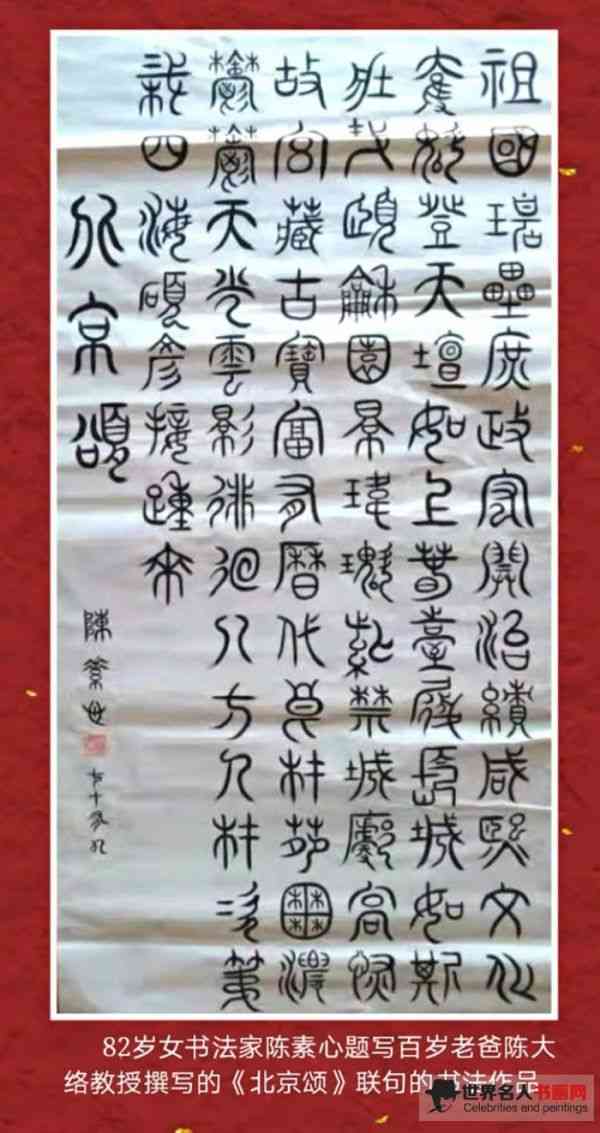 祖國壘庶政宏開治績咸熙文化
登天壇如上春臺履長城如斯
壯哉頤和園景瑋瑰紫禁城宮
故宮藏古寶富有曆代林苑濃
鬱鬱天光雲影徘徊八方人材次第
栽四海碩彥接踵來
北京頌
陳素
82岁女书法家陈素心题写百岁老爸陈大
络教授撰写的《北京颂》联句的书法作品
世界名人书画网
Celebrities and paintings